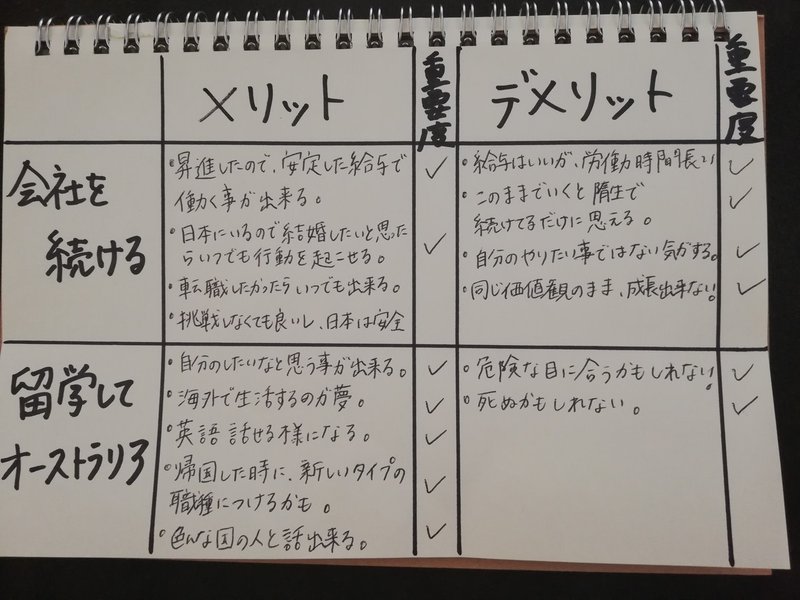 メリット
重要度
デメリット
重要度
会社を
続ける
・昇進したので、安定した給与で
働く事が出来る。
・日本にいるので結婚したいと思った
らいつでも行動を起こせる。
・転職したかったらいつでも出来る。
・挑戦しなくても良いし、日本は安全
✓
✓
・給与はいいが、労働時間が長い
・このままでいくと隋生で
続けてるだけに思える。
・自分のやりたい事ではない気がする。
・同じ価値観のまま、成長出来ない。
✓
✓
✓
✓
留学して
オーストラリア
・自分のしたいなと思う事が出来る。
・海外で生活するのが夢。
・英語話せる様になる。
・帰国した時に、新しいタイプの
職種につけるかも。
・色んな国の人と話出来る。
✓
✓
✓
✓
✓
・危険な目に合うかもしれない。
・死ぬかもしれない。
✓
✓